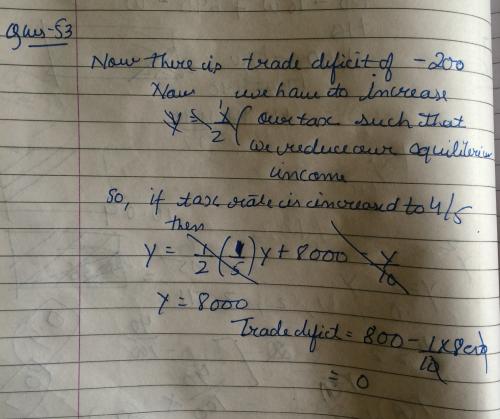 Ques-53
Now there is trade deficit of -200
Now we have to increase
our tax such that
we reduce our equilibrium
income
So, if tax rate is increased to 4/5
then
y = 1/2 (1/5) y + 8000 - y/10
y = 8000
Trade defict = 800 - 1/10 x 8000
= 0